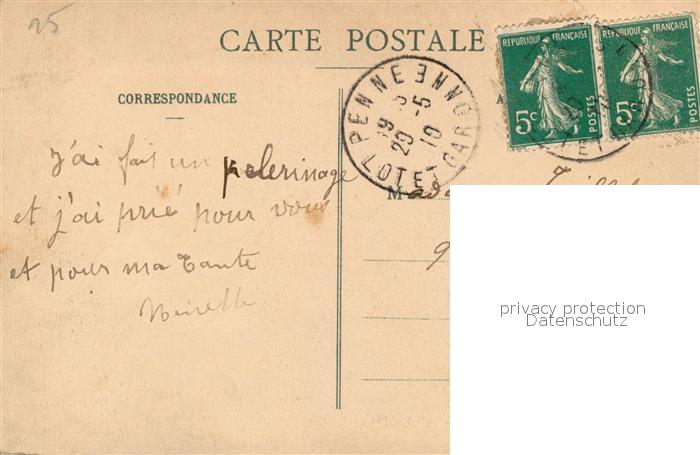 25
CARTE POSTALE
REPUBLIQUE FRANÇAISE
5c POSTES
REPUBLIQUE FRANÇAISE
5c POSTES
CORRESPONDANCE
PENNE
19 5
29 10
LOT ET GARONNE
J'ai fait un pelerinage
et j'ai prié pour vous
et pour ma tante
M
privacy protection
Datenschutz